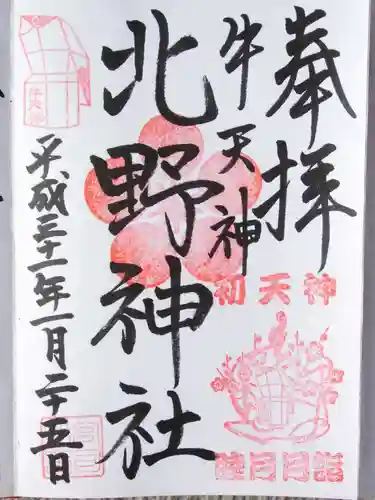 奉拝
牛天神
北野神社
平成三十一年一月二十五日
初天神
睦月月詣